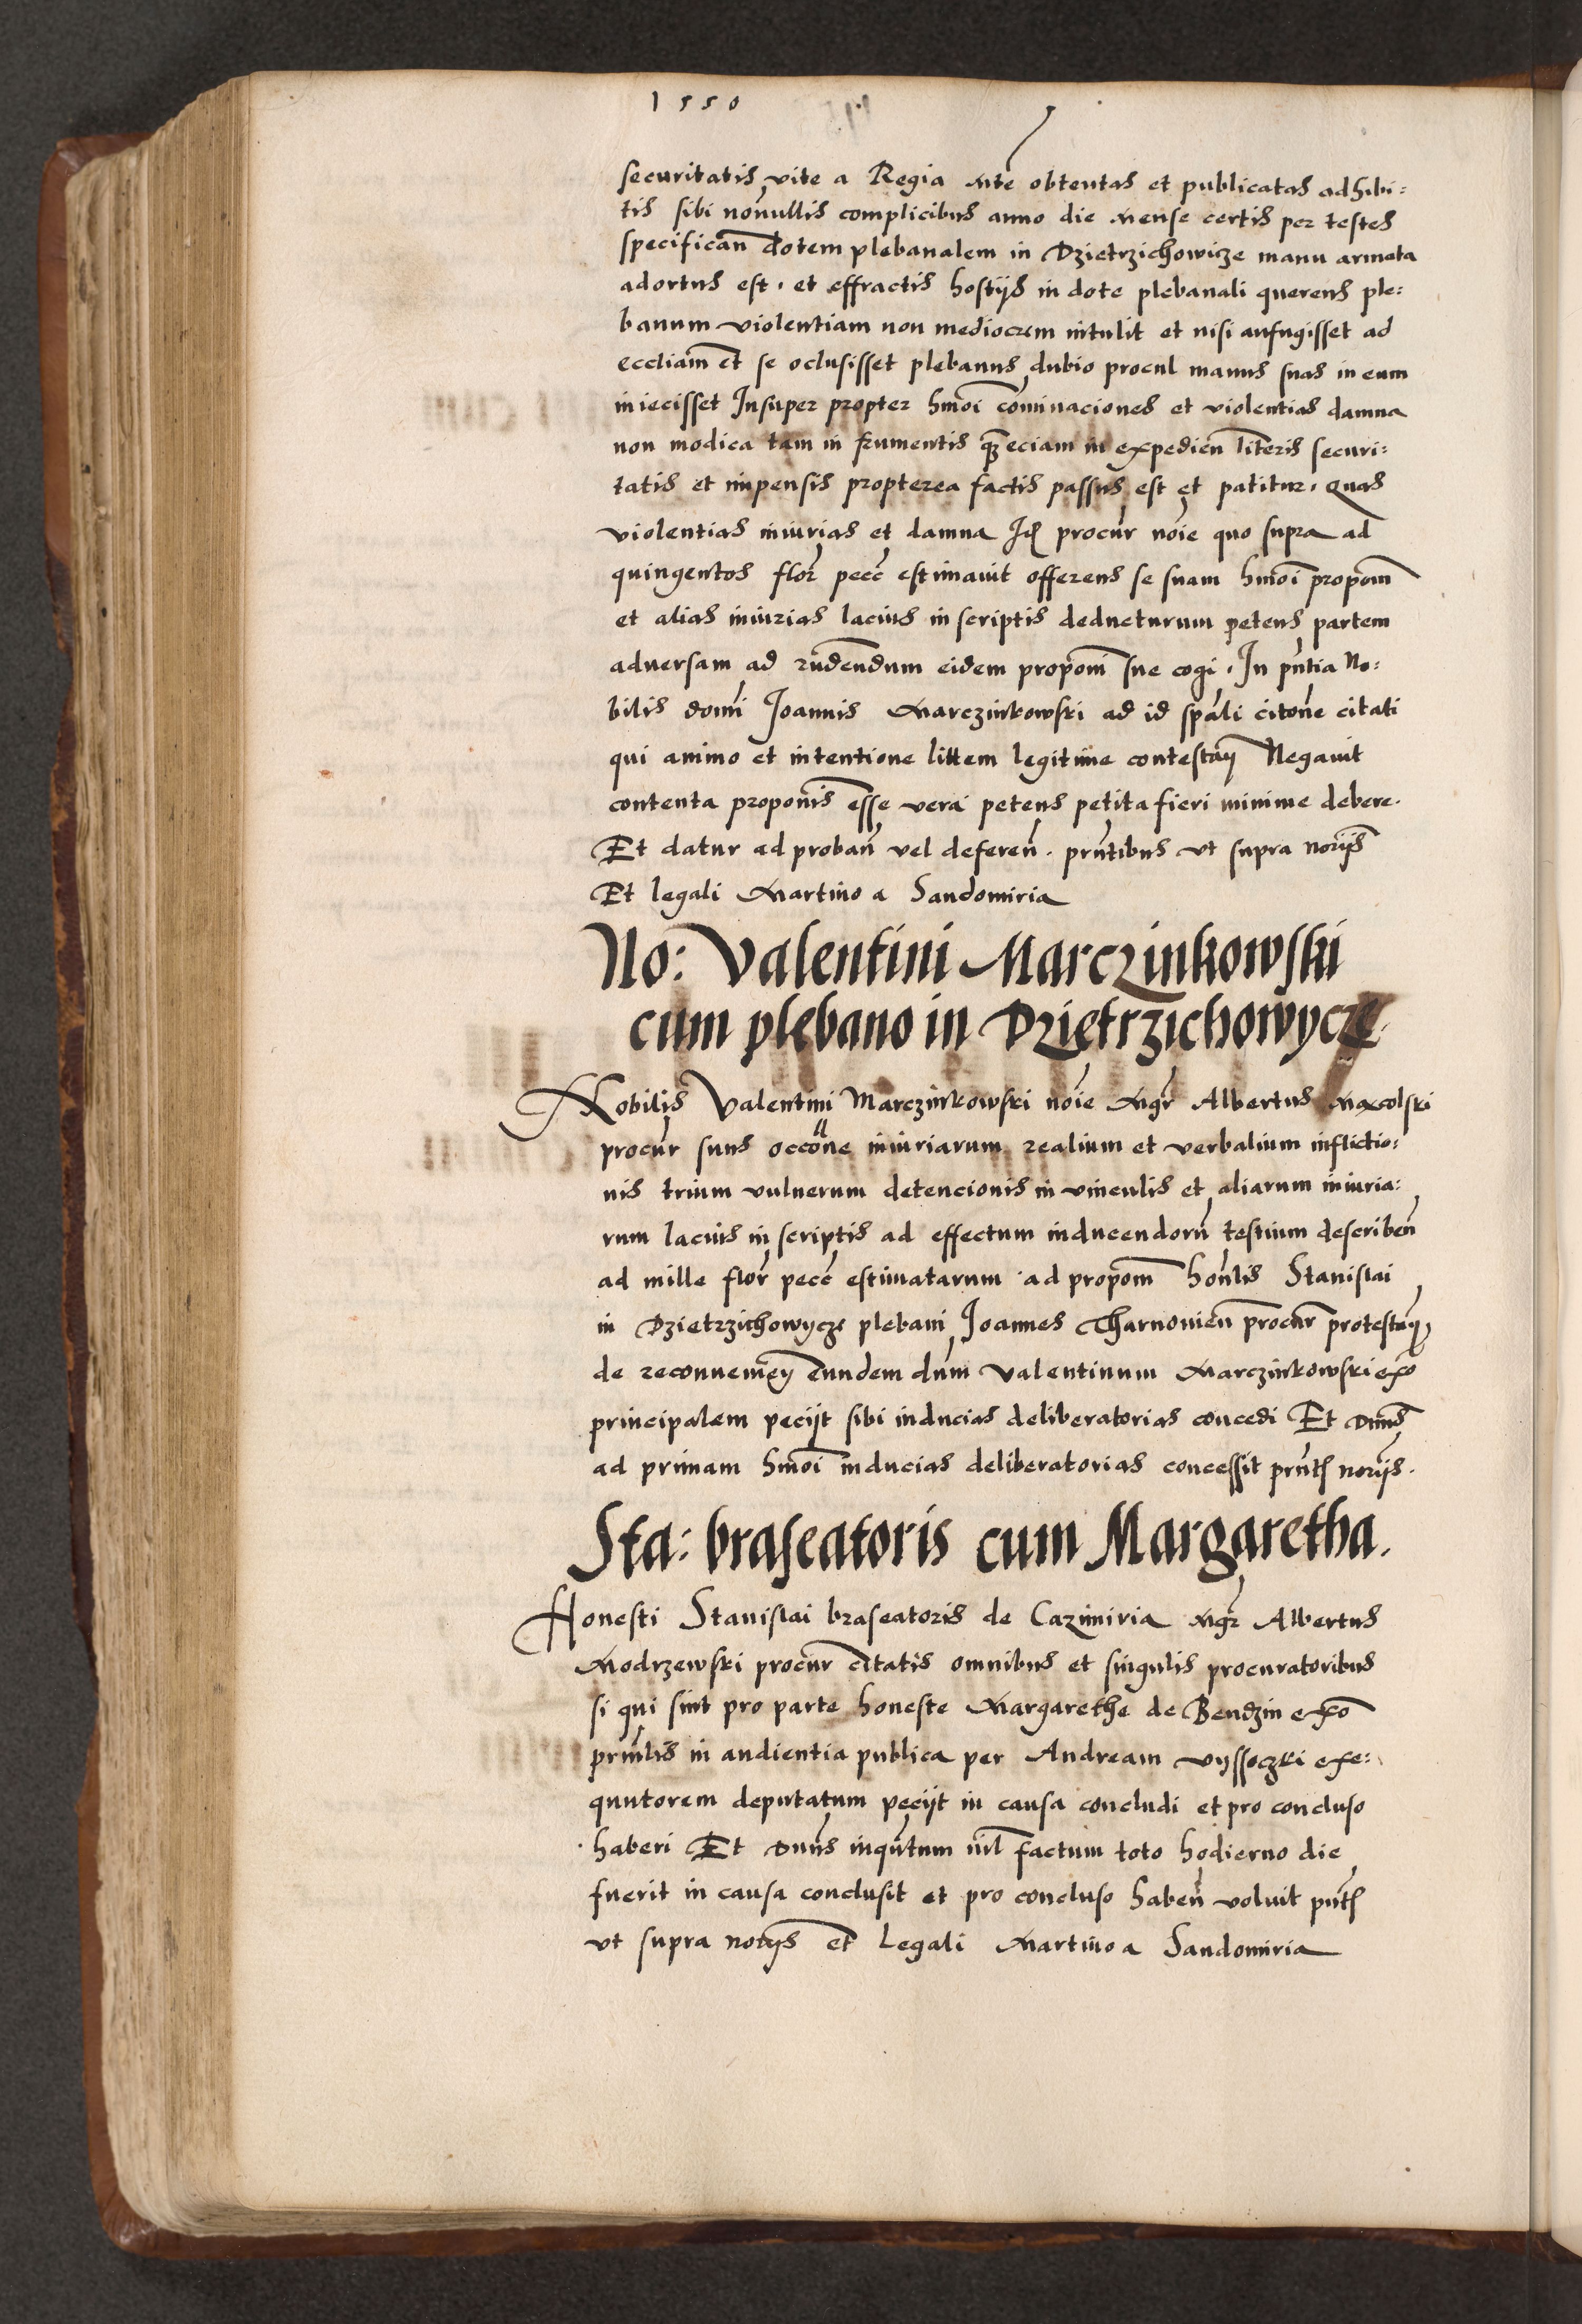 1550
securitatis vite a Regia Mte obtentas et publicatas adhibi:
tis sibi nonullis complicibus anno die Mense certis per testes
specifican dotem plebanalem in Dzietrzichowicze manu armata
adortus est. et effractis hostijs in dote plebanali querens ple:
banum violentiam non mediocrem intulit et nisi aufugisset ad
eccliam et se oclusisset plebanus dubio procul manus suas in eum
iniecisset Insuper propter hmoi cominaciones et violentias damna
non modica tam in frumentis q̄ eciam in expedien literis securi:
tatis et impensis propterea factis passus est et patitur. Quas
violentias iniurias et damna Id procur noie quo supra ad
quingentos flor pecc estimavit offerens se suam hmoi propom
et alias iniurias lacius in scriptis deducturum petens partem
adversam ad rndendum eidem proponi sue cogi. In pntia No:
bilis domi Joannis Marczinkowski ad id spali citone citati
qui animo et intentione littem legitime contestan Negavit
contenta proponis esse vera petens petita fieri minime debere.
Et datur ad proban vel deferen. prntibus vt supra norijs
Et legali Martino a Sandomiria
No: Valentini Marczinkowski
cum plebano in Dzietrzichowycze
Nobilis Valentini Marczinkowski noie Mgr Albertus
procur suus occone iniuriarum realium et verbalium inflictio:
nis trium vulnerum detencionis in vinculis et aliarum iniuria:
rum lacius in scriptis ad effectum inducendoru testium describen
ad mille flor pecc estimatarum ad propom honlis Stanislai
in Dzietrzichowycze plebani Joannes Tharnovien procur protestan
de reconven eundem dum Valentinum Marczinkowski exo
principalem pecijt sibi inducias deliberatorias concedi Et Dnus
ad primam hmoi inducias deliberatorias concessit prnt norijs.
Sta: braseatoris cum Margaretha.
Honesti Stanislai braseatoris de Cazimiria Mgr Albertus
Modrzewski procur citatis omnibus et singulis procuratoribus
si qui sint pro parte honeste Margarethe de Bendzin exo
prinlis in audientia publica per Andream Vyssoczki exe:
quutorem deputatum pecijt in causa concludi et pro concluso
haberi Et Dnus inquntum nil factum toto hodierno die
fuerit in causa conclusit et pro concluso haben voluit pnt
vt supra norijs et Legali Martino a Sandomiria